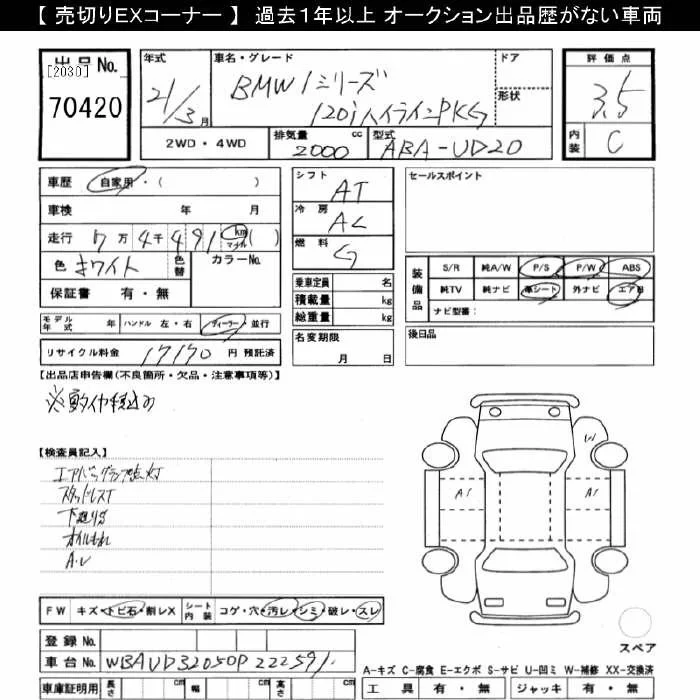 【 売切りEXコーナー 】 過去1年以上 オークション出品歴がない車両
出品No.
[2030]
70420
年式
21/3月
車名・グレード
BMW 1シリーズ
120i ハイラインPKG
ドア
形状
評価点
3.5
内装
C
2WD・4WD
排気量 cc
2000
型式
ABA-UD20
車歴 自家用・( )
車検 年 月
走行 7万4千491 km マイル ( )
色 ホワイト 色替 カラーNo.
保証書 有・無
シフト
AT
冷房
AC
燃料
G
セールスポイント
装備品
S/R 純A/W P/S P/W ABS
純TV 純ナビ 革シート 外ナビ エアB
ナビ型番:
乗車定員 名
積載量 kg
総重量 kg
モデル年式 年 ハンドル 左・右 ディーラー・並行
名変期限
月 日
後日品
リサイクル料金 17170 円 預託済
【出品店申告欄(不良箇所・欠品・注意事項等)】
【検査員記入】
エアバッグランプ点灯
スタッドレスT
下廻りサ
オイルもれ
A.U
W
AT
AT
FW キズ・トビ石・割レX シート内装 コゲ・穴・汚レ・シミ・破レ・スレ
スペア
登録No.
車台No. WBAUD32050P222591
A-キズ C-腐食 E-エクボ S-サビ U-凹ミ W-補修 XX-交換済
車庫証明用 長さ cm 幅 cm 高さ cm
工具 有・無 ジャッキ 有・無